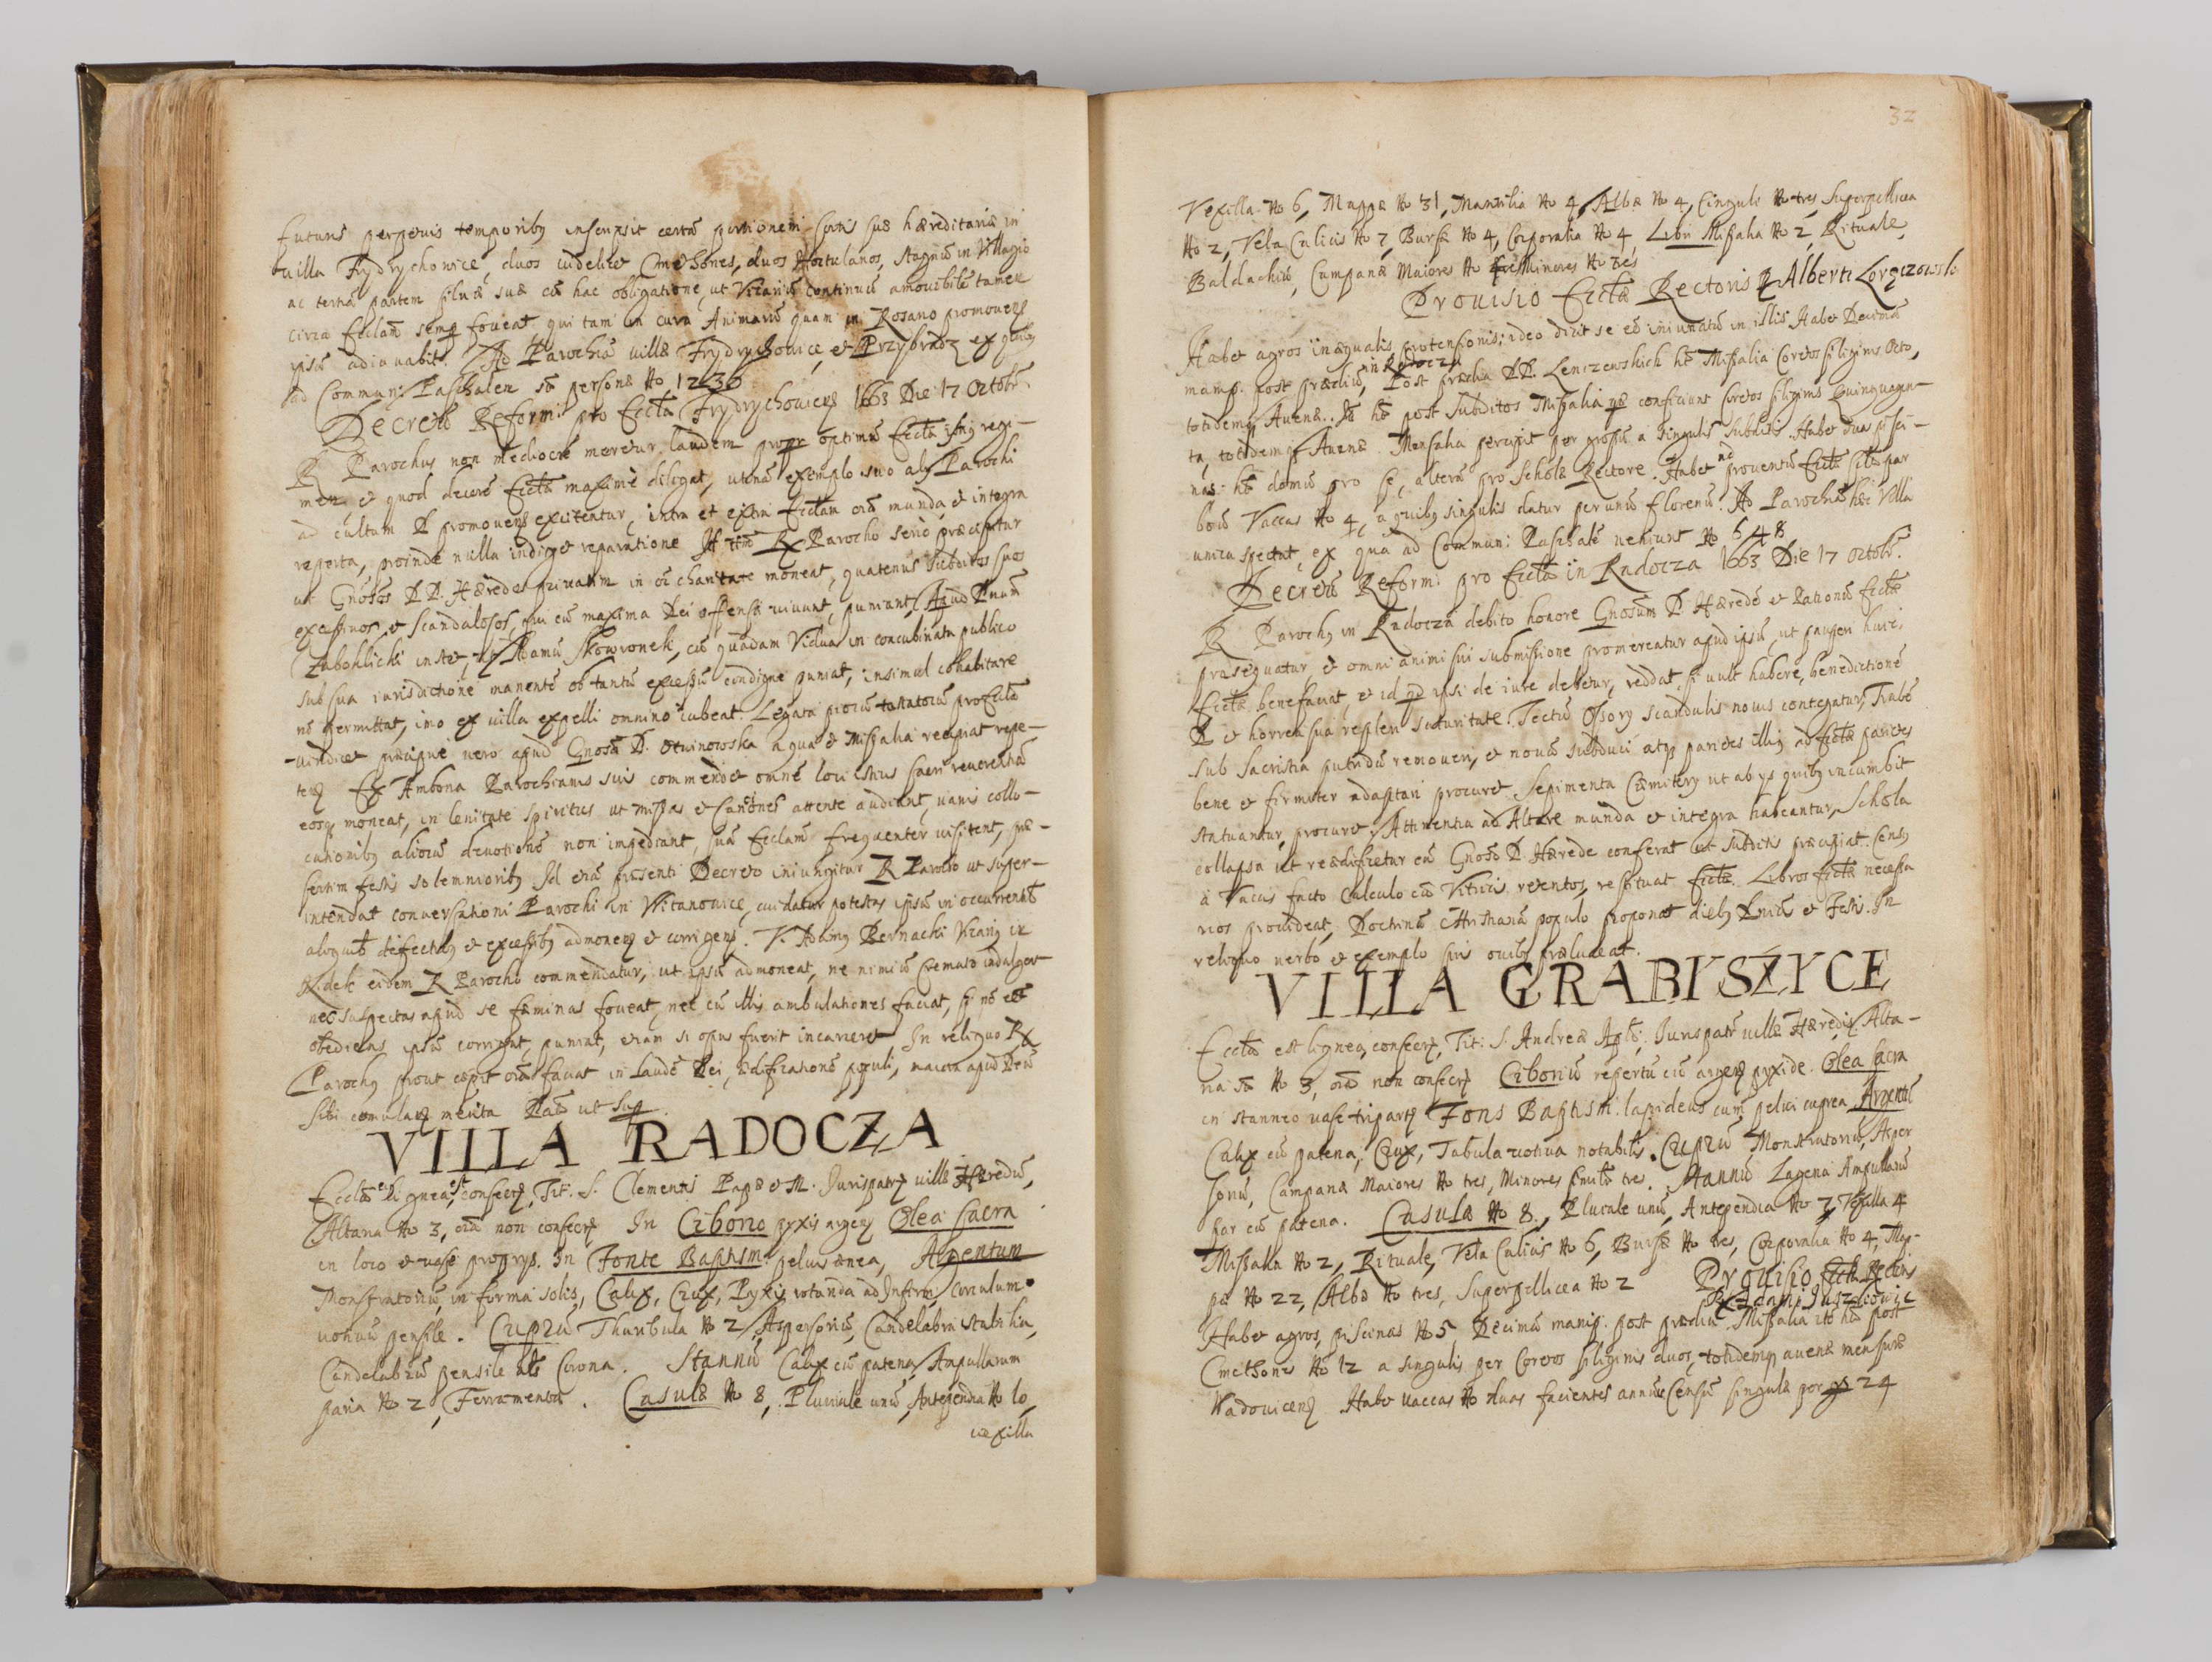 futuris perpetuis temporibꝫ inscripsit certã portionem sortis suæ hæreditariæ in
villa Frydrychowice, duos videlicet Cmethones, duos Hortulanos, stagnũ in Villagio
ac tertiã partem silvæ suæ cũ hac obligatione, ut Vicariũ continuũ amovibilẽ tamen
circa Ecclam semp foveat qui tam in cura Animarũ quam in Rosario promovenꝫ
ipsũ adiuvabit. Ad Parochiã villæ Frydrychowice, et Przybradz ex quibꝫ
ad Commun: Paschalem sũ personæ No 1236
Decretũ Reform: pro Eccla Frydrychovicenꝫ 1663 Die 17 Octobr:
R Parochus non mediocrẽ meretur laudem propt optimũ Ecclæ istiꝫ regi-
men et quod decorẽ Ecclæ maximè diligat, utinã exemplo suo alÿ Parochi
ad cultum D promovenꝫ excitentur, intra et extra Ecclam oĩa munda et integra
reperta, proinde nulla indiget reparatione. Parocho seriò præcipitur
ut Gnosos DD. Hæredes privatim in oĩ charitate moneat, quatenus subditos suos
excessivos et scandalosos, qui cũ maxima Dei offensa vivunt, puniant, Apud Dnum
Zabohlicki instet, Adamũ Skowronek, cũ quadam Vidua in concubinatu publico
sub sua iurisdictione manentẽ ob tantũ excessũ condigne puniat, insimul cohabitare
nõ permittat, imo ex villa expelli omnino iubeat. Legata piorũ testatorũ pro Eccla
vindicet præcipuè vero apud Gnosã D. Otwinowska a qua et Missalia recipiat repe-
tenꝫ Ex Ambona Parochianis suis commendet omnẽ loci istius sacri reverentiã
eosqꝫ moneat, in lenitate spiritus ut missas et Canciones attente audiant, vanis collo-
cutionibꝫ aliorũ devotionẽ non impediant, suã Ecclam frequenter visitent, præ-
sertim festis solemnioribꝫ. Id etiã præsenti Decreto iniungitur R Parocho ut super-
intendat conversationi Parochi in Witanowice, cui datur potestas ipsũ in occurrentibꝫ
defectibꝫ et excessibꝫ admonenꝫ et corrigenꝫ. V. Albinꝫ Bernacki Vicariꝫ
eidem R Parocho commendatur, ut ipsũ admoneat, ne nimiũ Cremato indulgeat
nec suspectas apud se fæminas foveat, nec cũ illis ambulationes faciat, si nõ erit
obediens ipsũ corrigat, puniat, etiam si opus fuerit incarceret. In reliquo R
Parochꝫ prout cæpit oĩa faciat in laudẽ Dei, ædificationẽ populi, maiora apud Deũ
sibi comulanꝫ merita Datũ ut Sup.
VILLA RADOCZA
Eccla lignea est, consecrꝫ, Tit: S. Clementis Papæ et M. Iurispatrꝫ villæ Hæredũ,
Altaria No 3, oĩa non consecrꝫ In Ciborio pyxis argenꝫ Olea sacra
in loco et vase proprÿs. In Fonte Baptism: pelvis ænea, Argentum
Monstratoriũ, in forma solis, Calix, Crux, Pyxis rotunda ad Infirm, Corculum
votivũ pensile. Cuprũ Thuribula No 2, Aspersoriũ, Candelabra stabilia,
Candelabrũ pensile als Corona. Stannũ Calix cũ patena, Ampullarum
paria No 2, Ferramentũ. Casulæ No 8, Pluviale unũ, Antependia No 10,
vexilla
32
Vexilla No 6, Mappæ No 31, Mantilia No 4, Albæ No 4, Cinguli No tres, Superpellicea
No 2, Vela Calicis No 7, Bursæ No 4, Corporalia No 4 Libri Missalia No 2, Rituale,
Baldachiũ, Campanæ Maiores No Minores No tres
Provisio Ecclæ Rectoris R Alberti Loręczowski
Habet agros inæqualis protensionis; ideo dicit se eẽ iniuriatũ in illis. Habet Decimã
manip. post prædiũ in Radocza, Post prædia DD. Lenczewskich ht Missalia Coretos siliginis Octo,
totidemqꝫ Avenæ. It ht post subditos Missalia quæ conficiunt Coretos siliginis Quinquagin-
ta, totidemqꝫ Avenæ. Mensalia percipit per grossũ a singulis subditis. Habet duas pisci-
nas. ht domũ pro se, alterã pro Scholæ Rectore. Habet ad proventũ Ecclæ par
boũ Vaccas No 4, a quibꝫ singulis datur per unũ florenũ. Ad Parochiã hæc Villa
unica spectat, ex qua ad Commun: Paschalẽ veniunt No 648
Decretũ Reform: pro Eccla in Radocza 1663 Die 17 Octobr.
R Parochꝫ in Radocza debito honore Gnosum D. Hæredẽ et Patronũ Ecclæ
prosequatur, et omni animi sui submissione promereatur apud ipsũ, ut pauperi huic
Ecclæ benefaciat, et id qd ipsi de iure debetur, reddat, si vult habere, benedictionẽ
D et horrea sua repleri saturitate. Tectũ Ossorÿ scandulis novis contegatur, Trabẽ
sub Sacristia putridũ removeri, et novũ subduci atqꝫ parietes illiꝫ ad Ecclæ parietes
bene et firmiter adaptari procuret. Sepimenta Cæmiterÿ ut ab ÿs quibꝫ incumbit
statuantur, procuret. Attinentia ad Altare munda et integra habeantur, Schola
collapsa ut reædificetur cũ Gnoso D. Hærede conferat ut subditis præcipiat. Censꝫ
à Vaccis facto Calculo cũ Vitricis, retentos, restituat Ecclæ. Libros Ecclæ necessa
rios provideat, Doctrinã Christianã populo proponat diebꝫ Dnicis et Festis. In
reliquo verbo et exemplo suis ovibꝫ præluceat.
VILLA GRABYSZYCE
Eccla est lignea, consecrꝫ, Tit: S. Andreæ Apli: Iurispatr villæ Hæredis, Alta-
ria sũ No 3, oĩa non consecrꝫ Ciboriũ repertũ cũ argenꝫ pyxide. Olea sacra
in stanneo vase tripartꝫ Fons Baptism. lapideus cum pelvi cuprea Argentũ
Calix cũ patena, Crux, Tabula votiva notabilis. Cuprũ Monstratoriũ, Asper
soriũ, Campanæ Maiores No tres, Minores simili tres. Stannũ Lagena Ampullarũ
par cũ patena. Casulæ No 8, Pluviale unũ, Antependia No 7, Vexilla 4
Missalia No 2, Rituale, Vela Calicis No 6, Bursæ No tres, Corporalia No 4, Map-
pæ No 22, Albæ No tres, Superpellicea No 2 Provisio Ecclæ Rectoris
R Adami
Habet agros, piscinas No 5 Decimã manip. post prædiũ. Missalia ht post
Cmethones No 12 a singulis per Coretos siliginis duos, totidemqꝫ avenæ mensuræ
Wadovicenꝫ Habet vaccas No duas facientes annuũ Censũ singulæ per gr 24